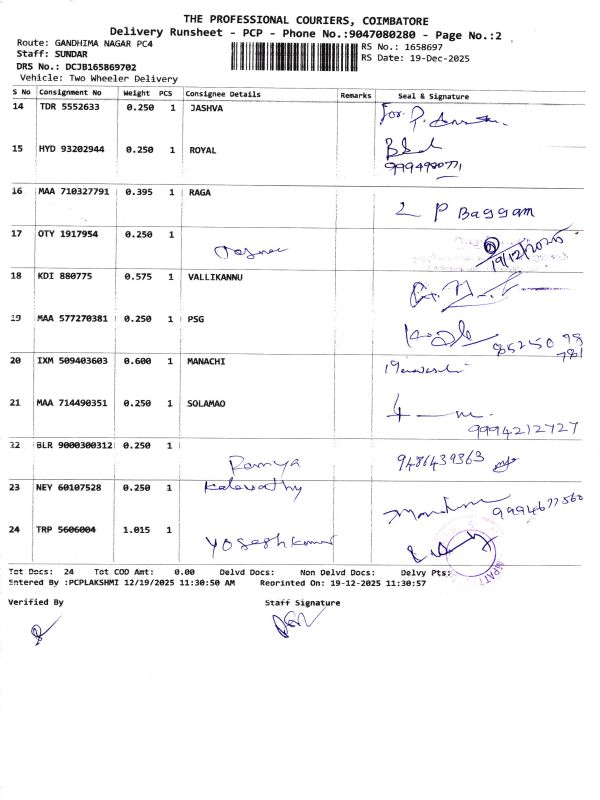 THE PROFESSIONAL COURIERS, COIMBATORE
Delivery Runsheet - PCP - Phone No.:9047080280 - Page No.:2
Route: GANDHIMA NAGAR PC4
RS No.: 1658697
Staff: SUNDAR
RS Date: 19-Dec-2025
DRS No.: DCJB165869702
Vehicle: Two Wheeler Delivery
S No Consignment No Weight PCS Consignee Details Remarks Seal & Signature
14 TDR 5552633 0.250 1 JASHVA For
15 HYD 93202944 0.250 1 ROYAL
16 MAA 710327791 0.395 1 RAGA P Baggam
17 OTY 1917954 0.250 1 19/12/2025
18 KDI 880775 0.575 1 VALLIKANNU
19 MAA 577270381 0.250 1 PSG 85250 98
781
20 IXM 509403603 0.600 1 MANACHI
21 MAA 714490351 0.250 1 SOLAMAO
9994212727
22 BLR 9000300312 0.250 1 Ramya 9486439363
23 NEY 60107528 0.250 1 Kalavathy 9994677560
24 TRP 5606004 1.015 1 Yogeshkumar
Tot Docs: 24 Tot COD Amt: 0.00 Delvd Docs: Non Delvd Docs: Delvy Pts:
Entered By :PCPLAKSHMI 12/19/2025 11:30:50 AM Reprinted On: 19-12-2025 11:30:57
Verified By Staff Signature